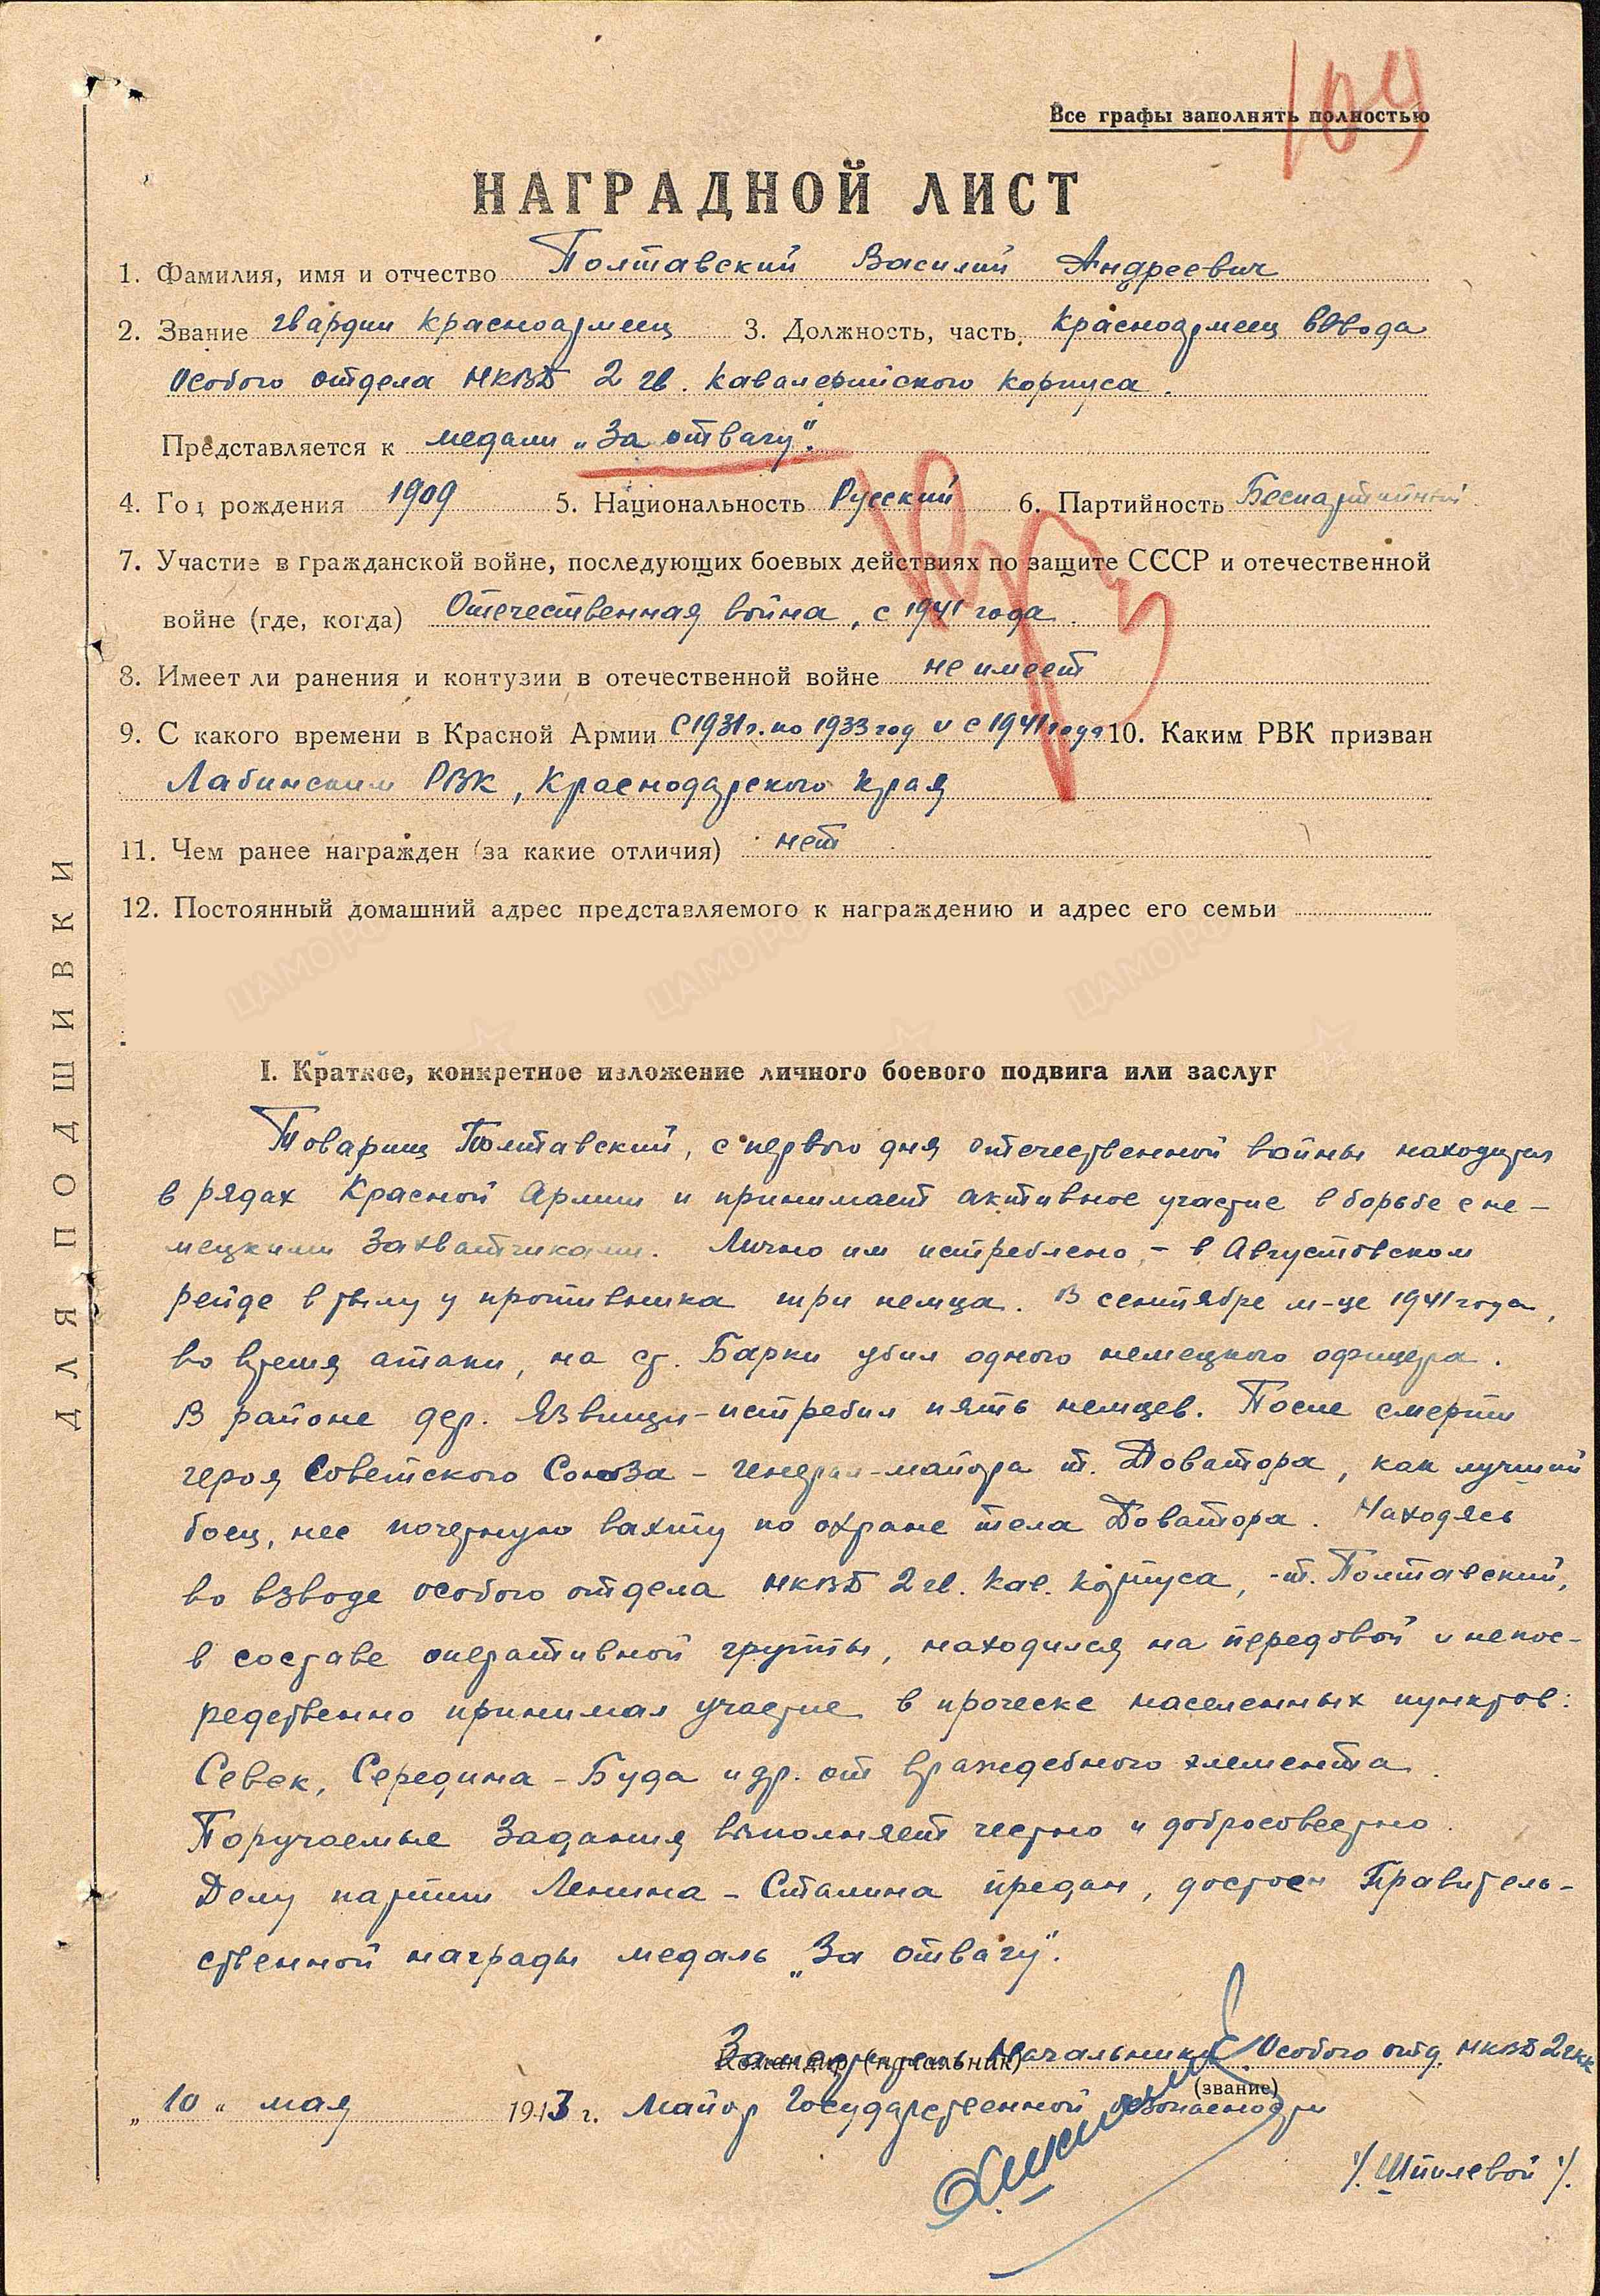 109
Все графы заполнять полностью
НАГРАДНОЙ ЛИСТ
1. Фамилия, имя и отчество Полтавский Василий Андреевич
2. Звание гвардии красноармеец 3. Должность, часть, красноармеец взвода
особого отдела НКВД 2 гв. кавалерийского корпуса.
Представляется к медали „За отвагу".
4. Год рождения 1909 5. Национальность Русский 6. Партийность Беспартийный
7. Участие в гражданской войне, последующих боевых действиях по защите СССР и отечественной
войне (где, когда) Отечественная война, с 1941 года.
8. Имеет ли ранения и контузии в отечественной войне не имеет
9. С какого времени в Красной Армии С 1931 г. по 1933 год и с 1941 года 10. Каким РВК призван
Лабинским РВК, Краснодарского края
11. Чем ранее награжден (за какие отличия) нет
12. Постоянный домашний адрес представляемого к награждению и адрес его семьи
I. Краткое, конкретное изложение личного боевого подвига или заслуг
Товарищ Полтавский, с первого дня отечественной войны находится
в рядах Красной Армии и принимает активное участие в борьбе с не-
мецкими захватчиками. Лично им истреблено, - в Августовском
рейде в тылу у противника три немца. В сентябре м-це 1941 года,
во время атаки, на ст. Барки убил одного немецкого офицера.
В районе дер. Язвищи - истребил пять немцев. После смерти
героя Советского Союза - генерал-майора т. Доватора, как лучший
боец, нес почетную вахту по охране тела Доватора. Находясь
во взводе особого отдела НКВД 2 гв. кав. корпуса, - т. Полтавский,
в составе оперативной группы, находился на передовой и непос-
редственно принимал участие в проческе населенных пунктов:
Севск, Середина - Буда и др. от враждебного элемента.
Поручаемые задания выполняет честно и добросовестно.
Делу партии Ленина - Сталина предан, достоен Правитель-
ственной награды медаль „За отвагу".
Командир (начальник)
Заместитель Начальника Особого отд. НКВД 2 гкк
(звание)
„10" мая 1943 г. Майор Государственной безопасности
/. Шпилевой /.
ДЛЯ ПОДШИВКИ
ЦАМО РФ